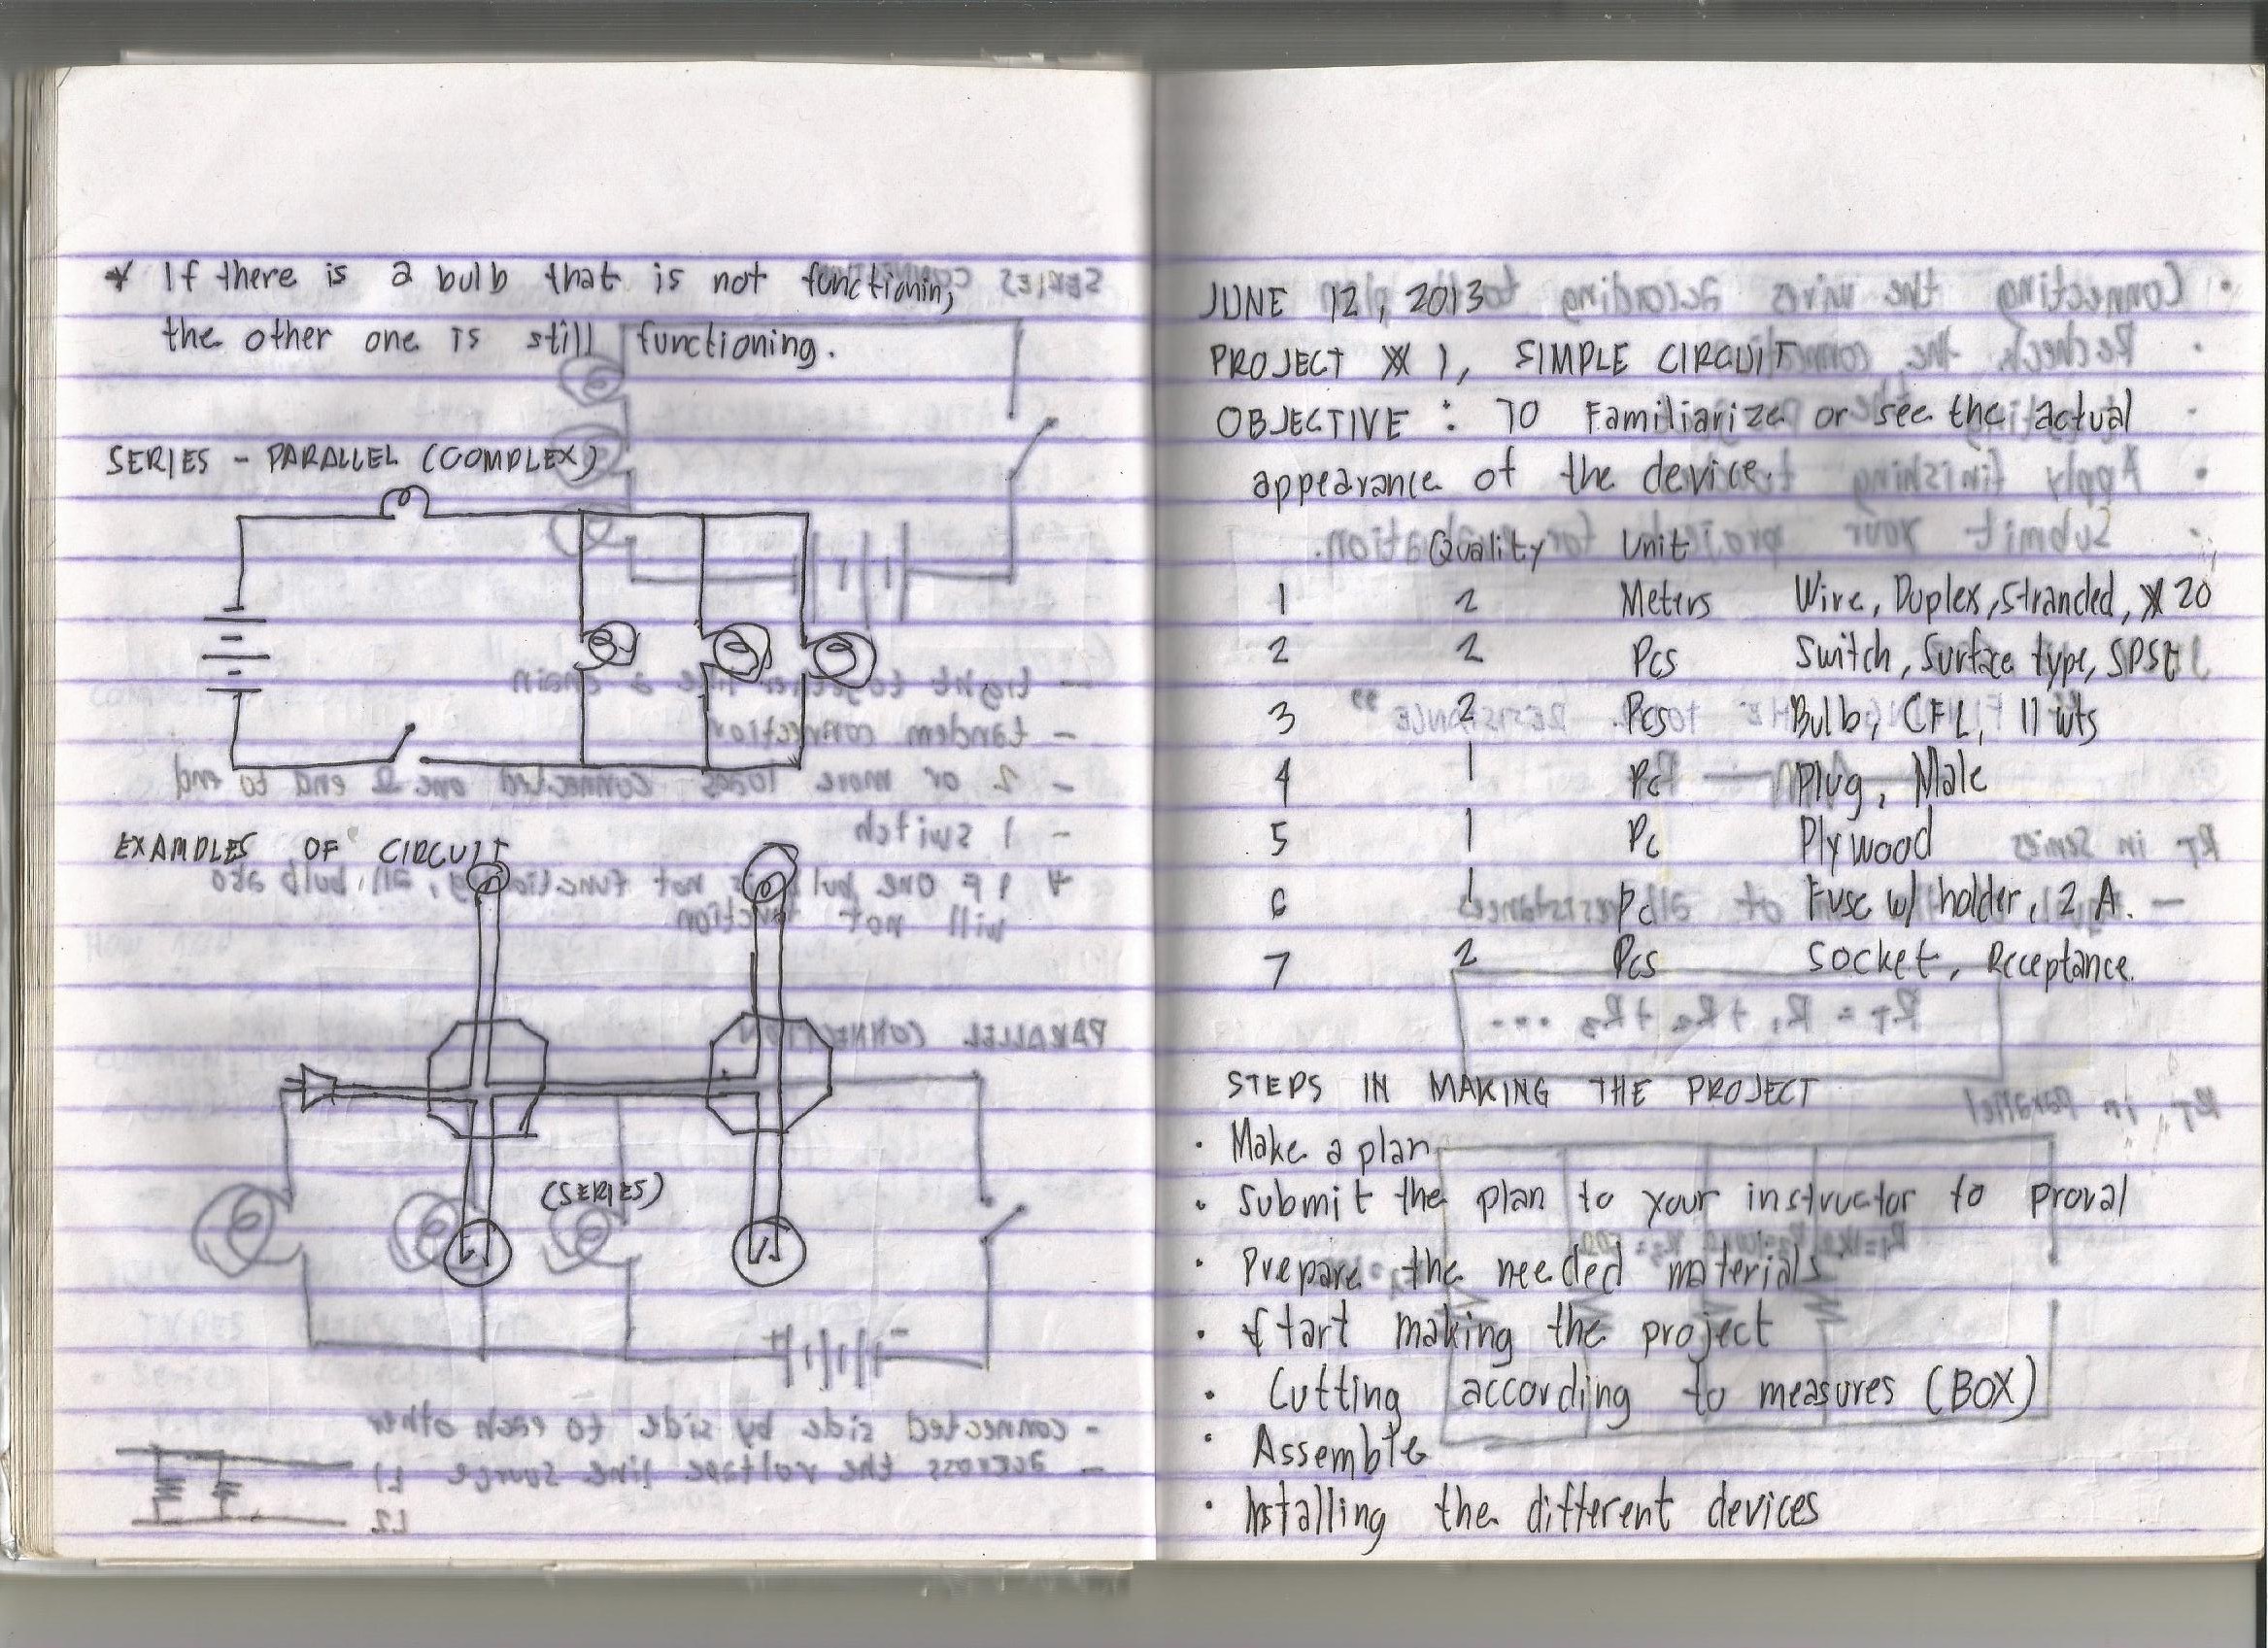 * If there is a bulb that is not functionin,
the other one is still functioning.
SERIES - PARALLEL (COMPLEX)
EXAMPLES OF CIRCUIT
(SERIES)
JUNE 12, 2013
PROJECT # 1, SIMPLE CIRCUIT
OBJECTIVE : TO Familiarize or see the actual
appearance of the device.
Quality Unit
1 2 Meters Wire, Duplex, Stranded, # 20
2 2 Pcs Switch, Surface type, SPST
3 2 Pcs Bulb, CFL, 11 wts
4 1 Pc Plug, Male
5 1 Pc Plywood
6 1 Pc Fuse w/ holder, 2 A.
7 2 Pcs Socket, Receptance.
STEPS IN MAKING THE PROJECT
· Make a plan
· Submit the plan to your instructor to proval
· Prepare the needed materials
· Start making the project
· Cutting according to measures (BOX)
· Assemble
· Installing the different devices